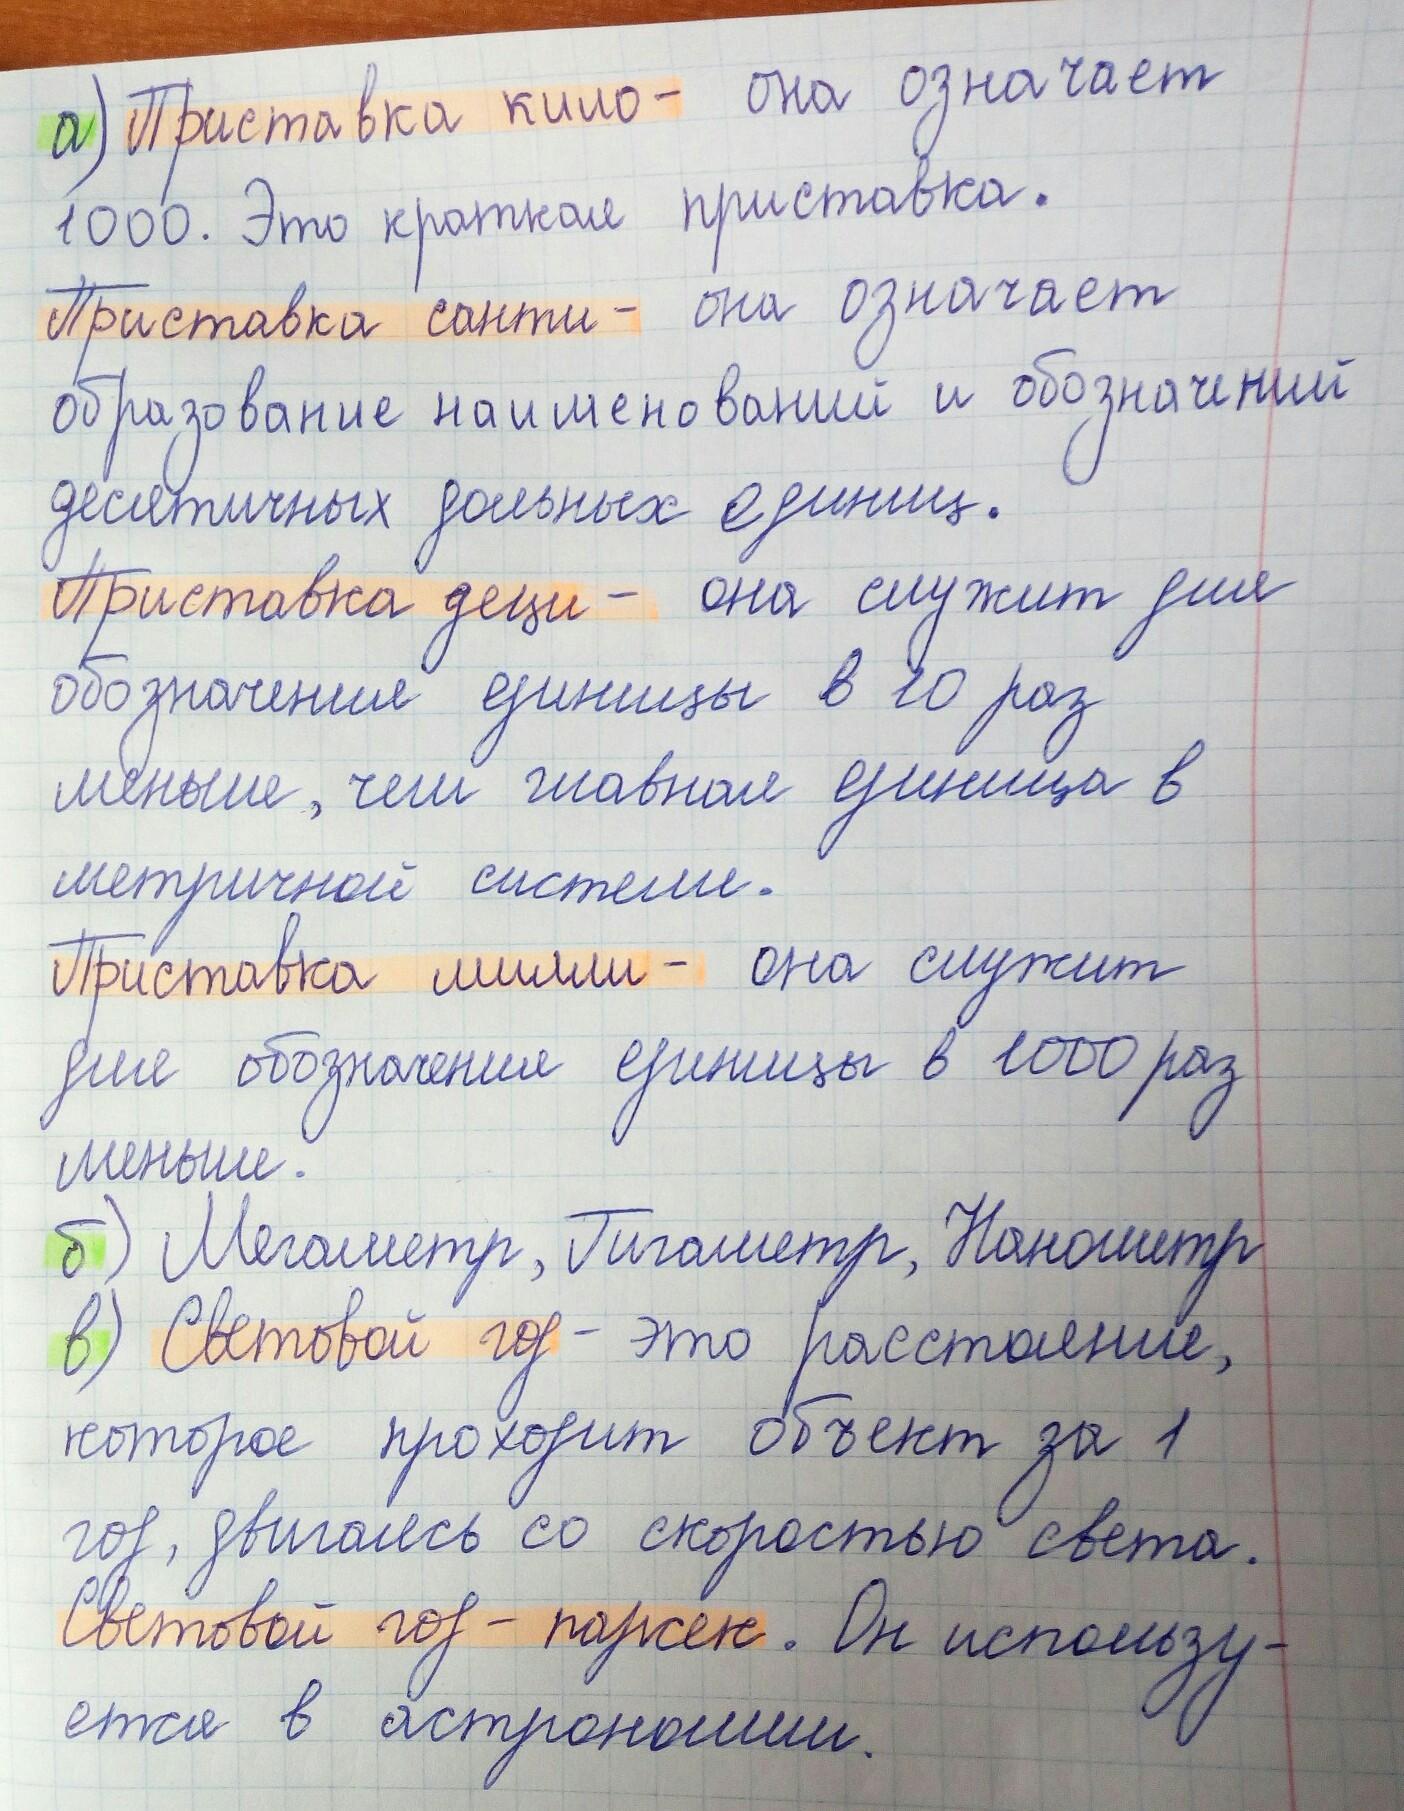 а) Приставка кило- она означает
1000. Это краткая приставка.
Приставка санти- она означает
образование наименований и обозначений
десятичных дольных единиц.
Приставка деци- она служит для
обозначения единицы в 10 раз
меньше, чем главная единица в
метричной системе.
Приставка милли- она служит
для обозначения единицы в 1000 раз
меньше.
б) Мегаметр, Гигаметр, Нанометр
в) Световой год - это расстояние,
которое проходит объект за 1
год, двигаясь со скоростью света.
Световой год - парсек. Он использу-
ется в астрономии.